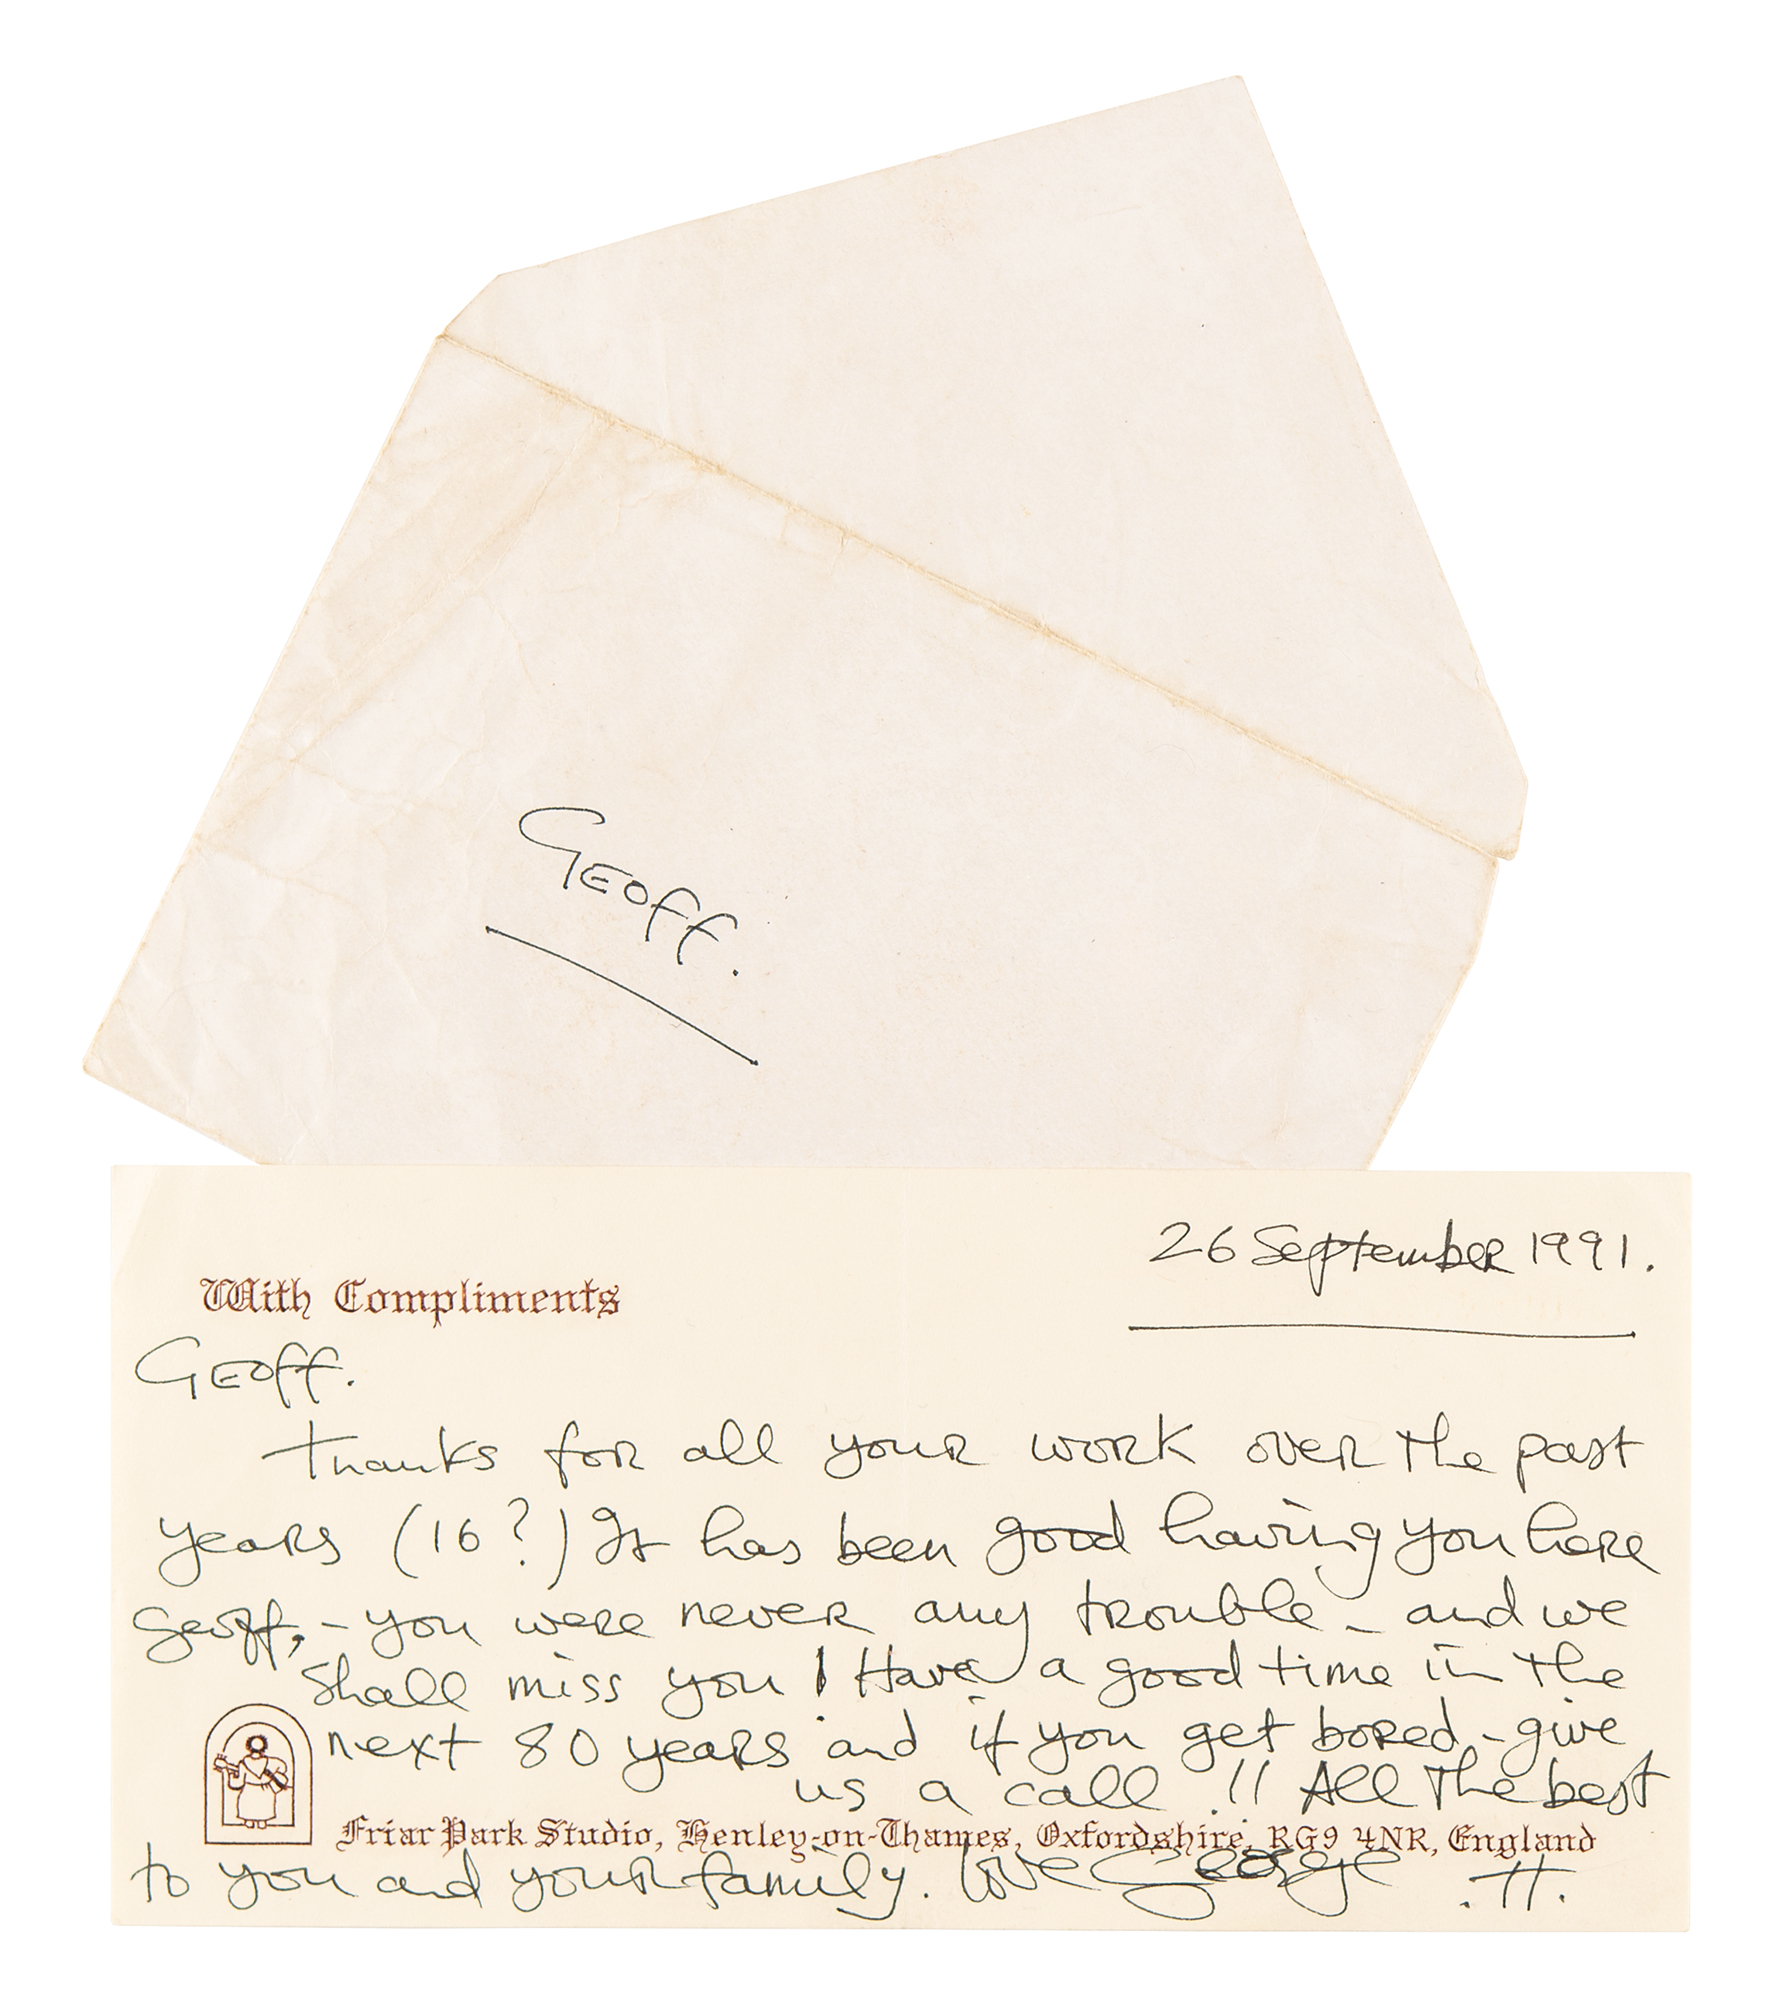 Geoff.
26 September 1991.
With Compliments
Geoff.
Thanks for all your work over the past
years (16?) It has been good having you here
Geoff, - you were never any trouble - and we
shall miss you! Have a good time in the
next 80 years and if you get bored - give
us a call !! All the best
Friar Park Studio, Henley-on-Thames, Oxfordshire, RG9 4NR, England
to you and your family. Love George .H.